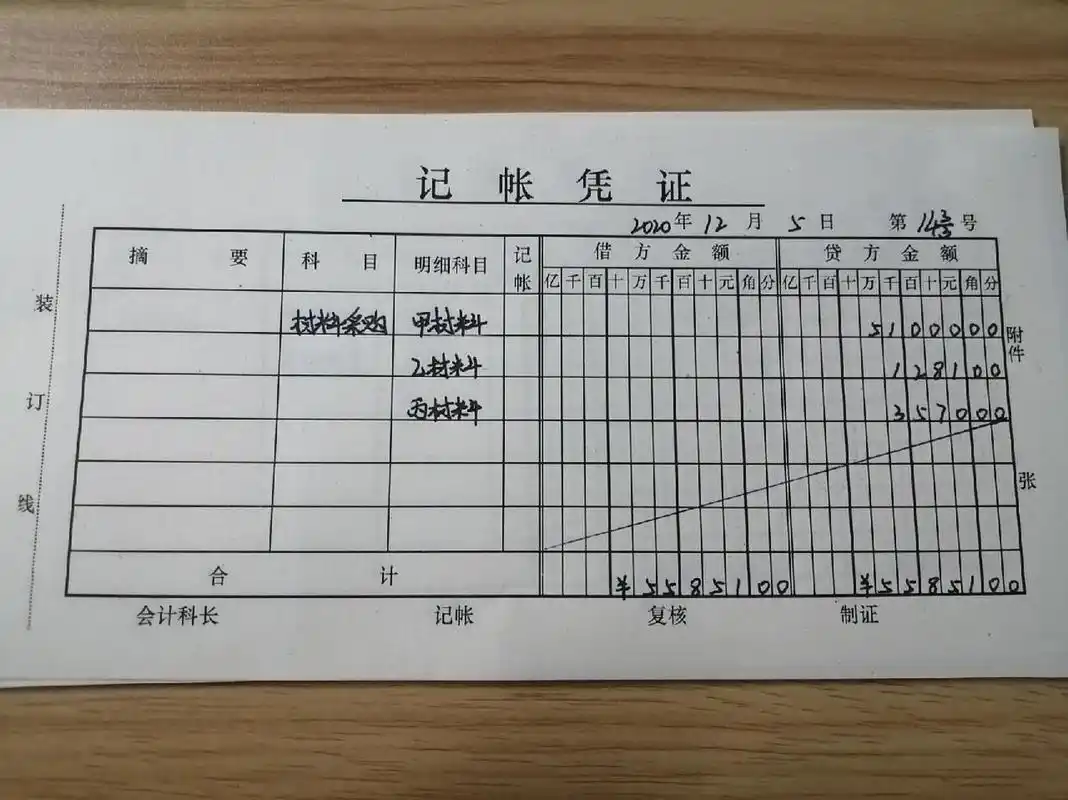 记帐凭证
2020年12月5日 第14 号
摘要 科目 明细科目 记帐 借方金额 贷方金额
亿千百十万千百十元角分 亿千百十万千百十元角分
材料采购 甲材料 5100000
乙材料 128100
丙材料 357000
合计 ¥5585100 ¥5585100
会计科长 记帐 复核 制证
附件
张
装
订
线